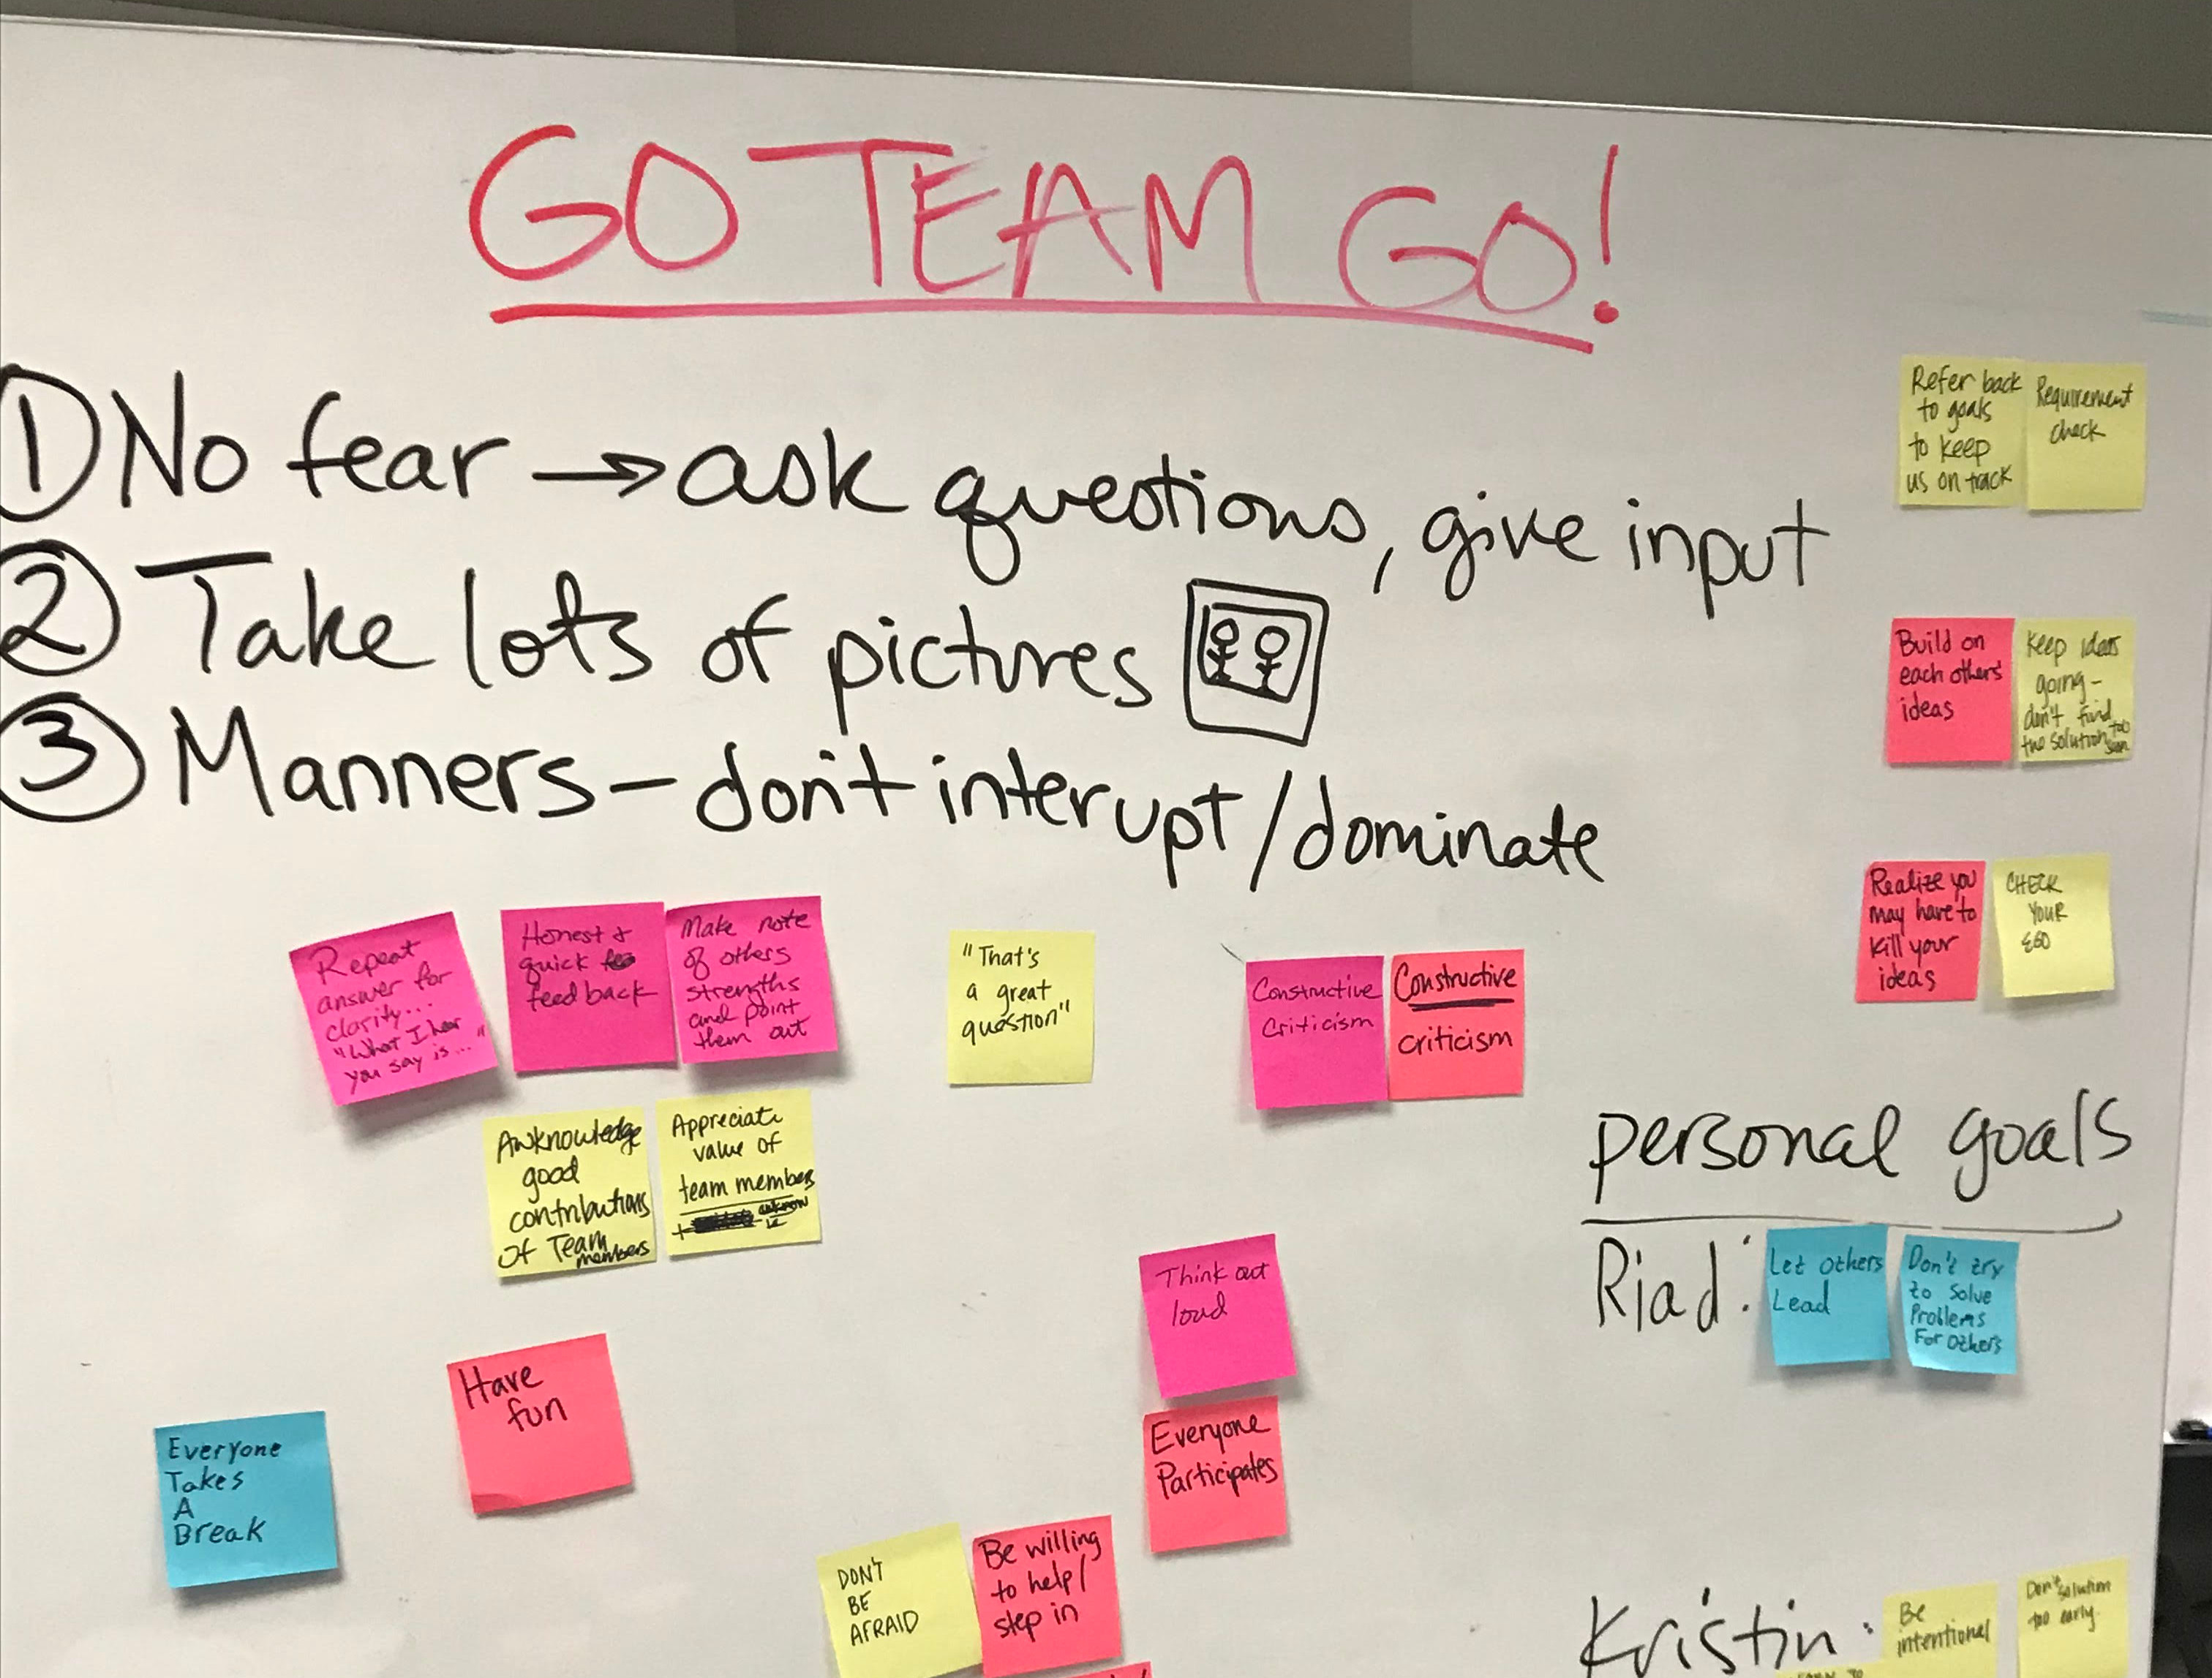 GO TEAM GO!
① No fear → ask questions, give input
② Take lots of pictures
③ Manners – don't interupt/dominate
Refer back
to goals
to keep
us on track
Requirement
check
Build on
each others'
ideas
Keep ideas
going –
don't find
the solution too
soon
Realize you
may have to
kill your
ideas
CHECK
YOUR
EGO
Repeat
answer for
clarity...
"What I hear
you say is..."
Honest +
quick
feedback
Make note
of others
strengths
and point
them out
"That's
a great
question"
Constructive
Criticism
Constructive
criticism
Awknowledge
good
contributions
of Team
members
Appreciate
value of
team members
+
Think out
loud
Everyone
Participates
Have
fun
Everyone
Takes
A
Break
DON'T
BE
AFRAID
Be willing
to help/
step in
personal goals
Riad:
Let others
Lead
Don't try
to Solve
Problems
For Others
Kristin:
Be
intentional
Don't solution
too early.